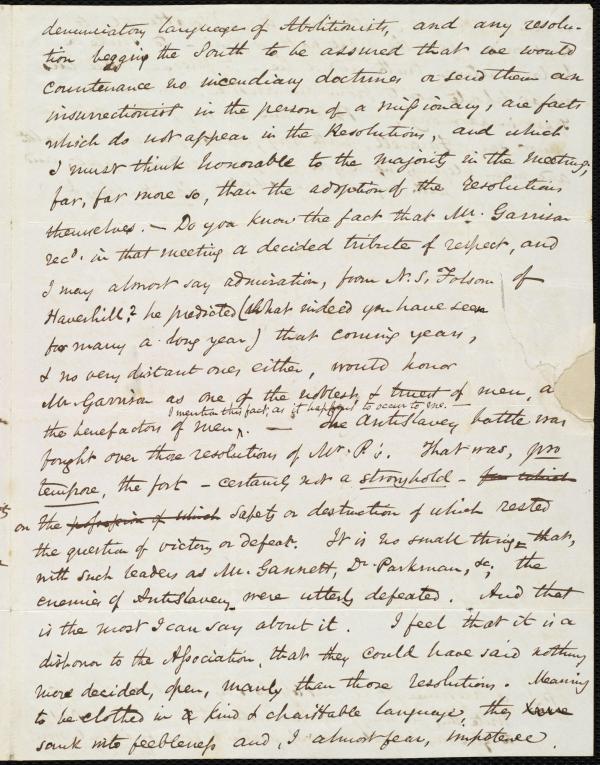 denunciatory language of Abolitionists, and any resolu-
tion begging the South to be assured that we would
countenance no incendiary doctrines or send them an
insurrectionist in the person of a missionary, are facts
which do not appear in the Resolutions, and which
I must think honorable to the majority in the meeting,
far, far more so, than the adoption of the resolutions
themselves. — Do you know the fact that Mr. Garrison
recd. in that meeting a decided tribute of respect, and
I may almost say admiration, from N. S. Folsom of
Haverhill? he predicted (what indeed you have seen
for many a long year) that coming years,
& no very distant ones either, would honor
Mr. Garrison as one of the noblest & truest of men, a
I mention this fact, as it happens to occur to me. —
the benefactors of men. — The Antislavery battle was
fought over those resolutions of Mr. P's. That was, pro
tempore, the fort – certainly not a stronghold – for which
on the possession of which safety or destruction of which rested
the question of victory or defeat. It is no small thing – that,
with such leaders as Mr. Gannett, Dr. Parkman, &c, the
enemies of Antislavery were utterly defeated. And that
is the most I can say about it. I feel that it is a
dishonor to the Association, that they could have said nothing
more decided, open, manly than those resolutions. Meaning
to be clothed in a kind & charitable language, they have
sunk into feebleness and, I almost fear, impotence.